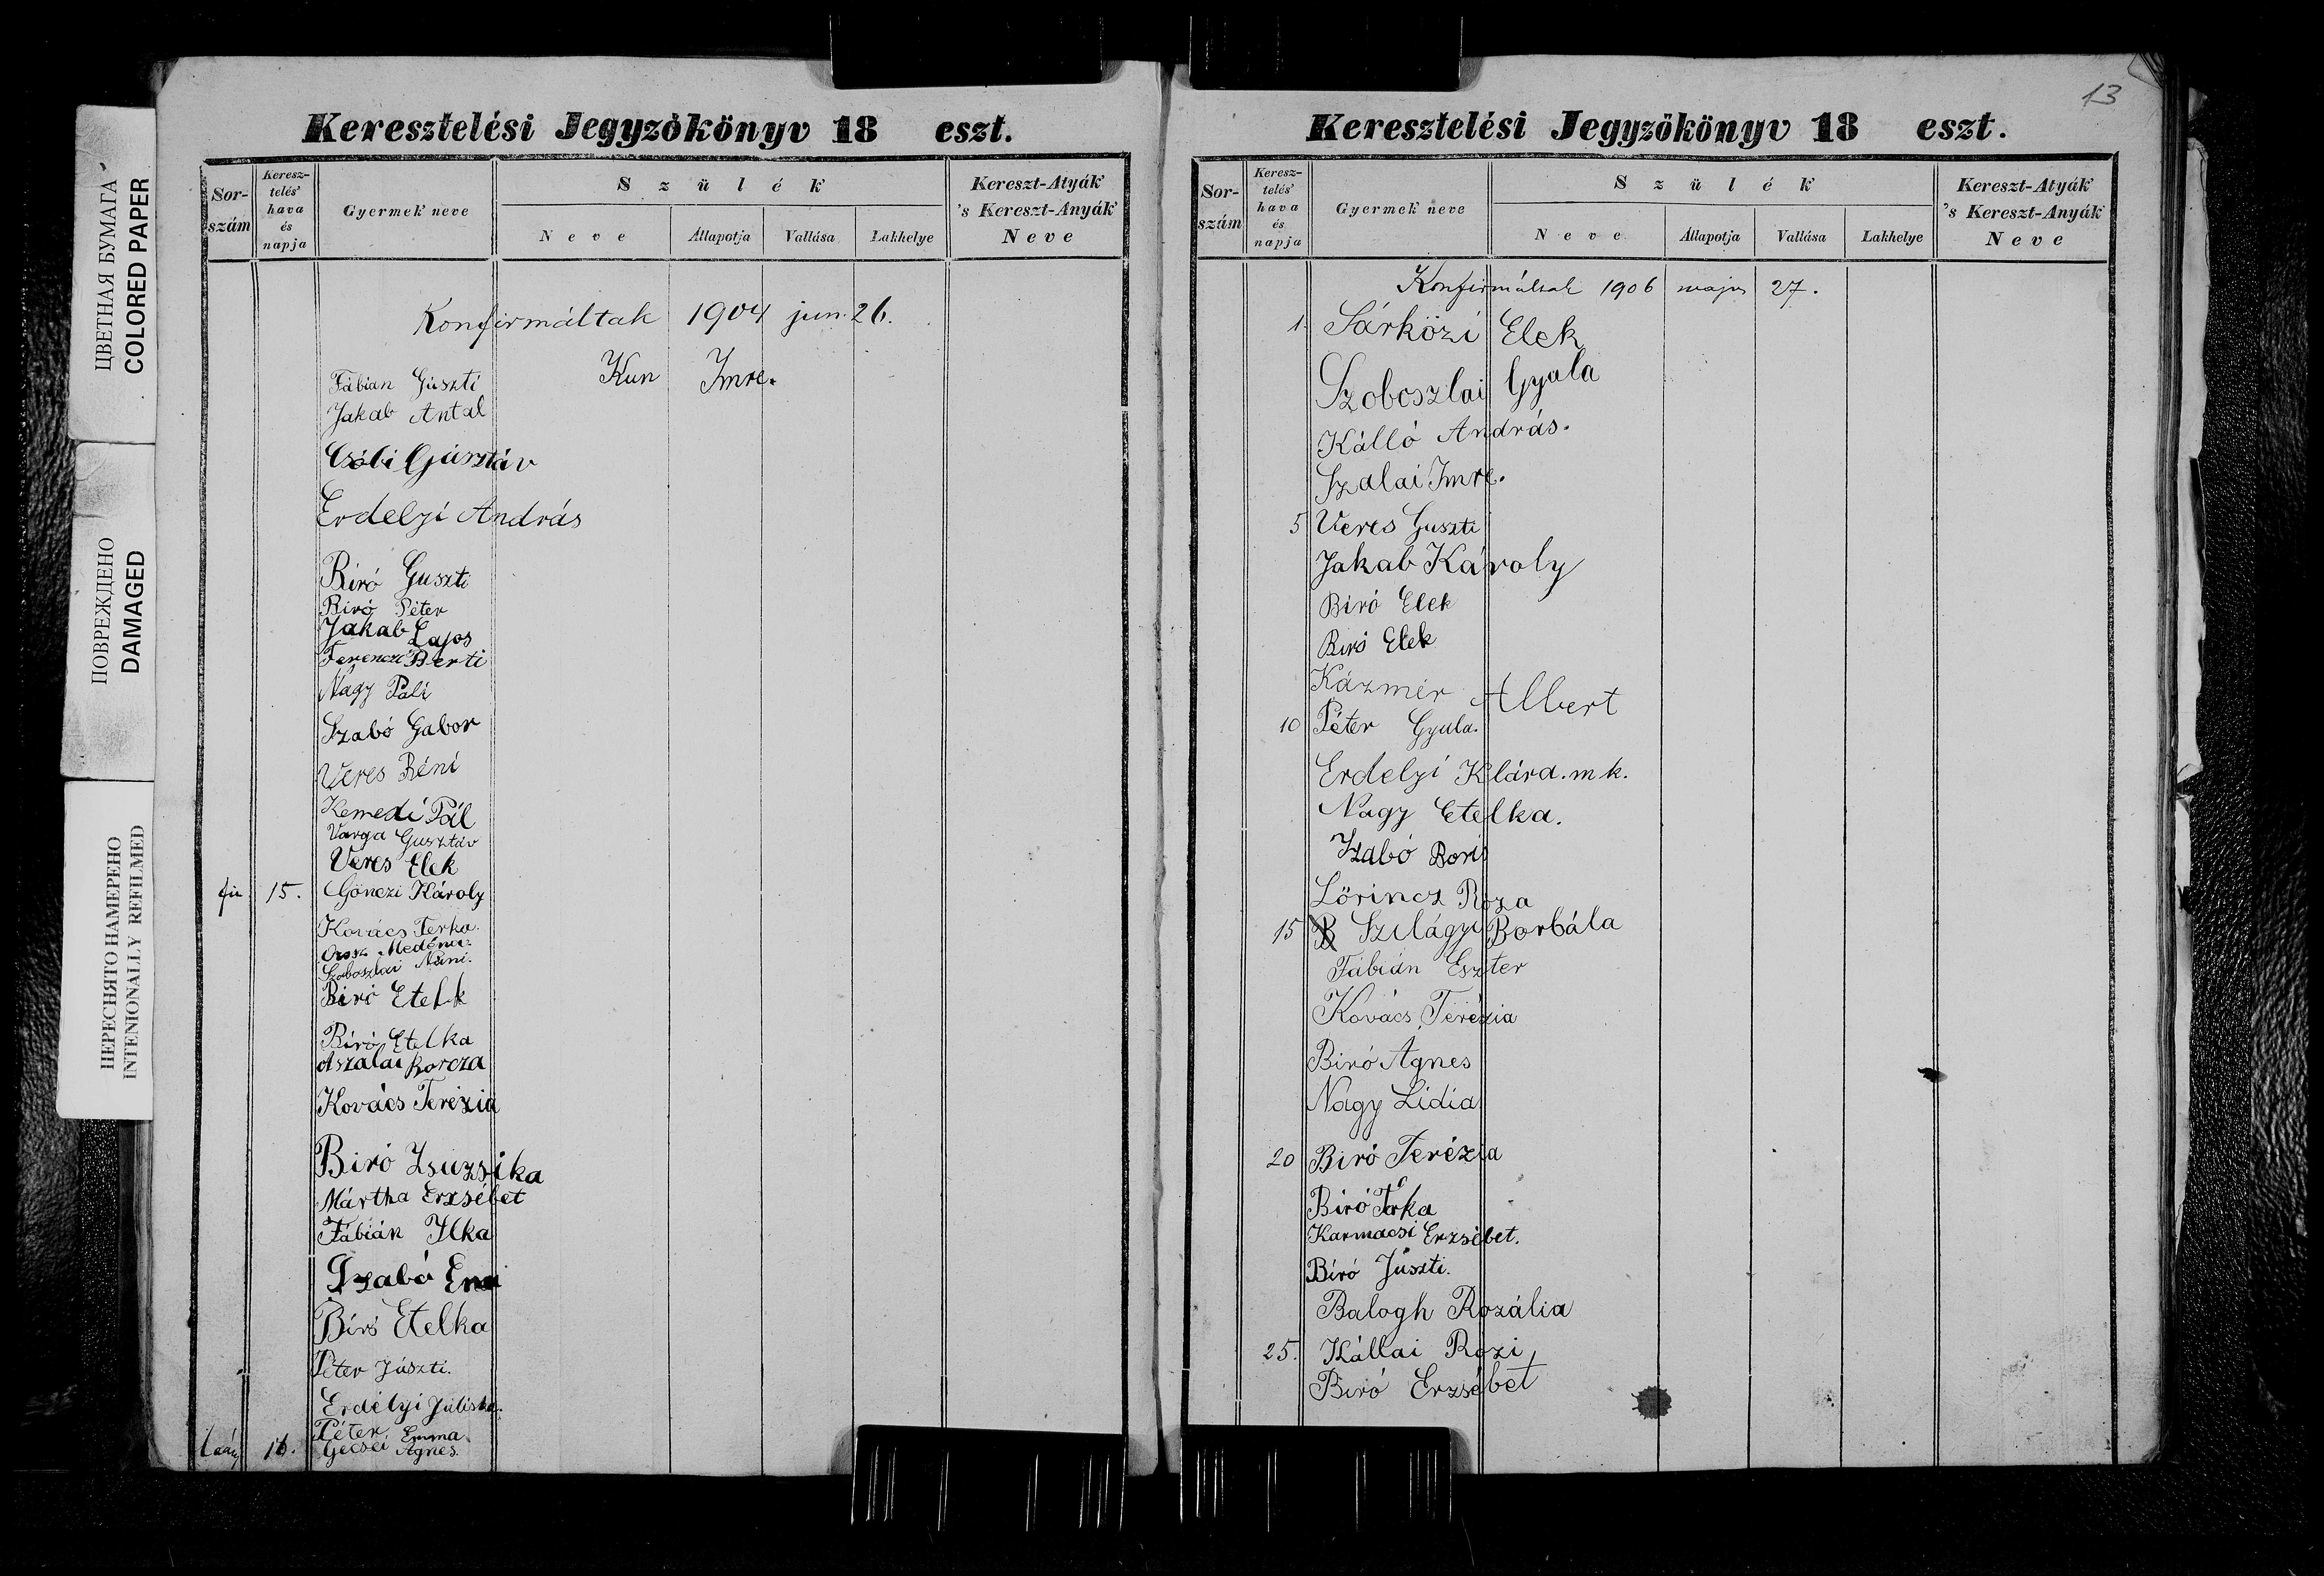 ЦВЕТНАЯ БУМАГА
COLORED PAPER
ПОВРЕЖДЕНО
DAMAGED
ПЕРЕСНЯТО НАМЕРЕНО
INTENIONALLY REFILMED
Keresztelési Jegyzőkönyv 18 eszt.
Sor-szám
Keresz-telés' hava és napja
Gyermek' neve
Szülék'
Neve
Állapotja
Vallása
Lakhelye
Kereszt-Atyák 's Kereszt-Anyák' Neve
Konfirmáltak 1904 jun. 26.
Fábián Guszti
Kun Imre.
Jakab Antal
Csóbi Gusztáv
Erdelyi András
Biró Guszti
Biró Péter
Jakab Lajos
Ferenczi Berti
Nagy Pali
Szabó Gabor
Veres Béni
Kemedi Pál
Varga Gusztáv
Veres Elek
fiu 15. Gönczi Károly
Kovács Terka.
Orosz
Szoboszlai Náni.
Biró Etelk
Biró Etelka
Aszalai Borcza
Kovács Terézia
Biró Zsuzsika
Mártha Erzsébet
Fábián Ilka
Szabó
Biró Etelka
Péter Júszti.
Erdélyi Juliska.
Péter Emma
leány 16. Gecsei Agnes.
13
Keresztelési Jegyzőkönyv 18 eszt.
Sor-szám
Keresz-telés' hava és napja
Gyermek' neve
Szülék'
Neve
Állapotja
Vallása
Lakhelye
Kereszt-Atyák 's Kereszt-Anyák' Neve
Konfirmáltak 1906 majus 27.
1. Sárközi Elek
Szoboszlai Gyula
Kálló András.
Szalai Imre.
5 Veres Guszti
Jakab Károly
Biró Elek
Biró Elek
Kázmér Albert
10 Péter Gyula.
Erdelyi Klára. mk.
Nagy Etelka.
Szabó Boris
Lőrincz Róza
15 B Szilágyi Borbála
Fábián Eszter
Kovács Terézia
Biró Agnes
Nagy Lidia
20 Biró Terézia
Biró
Karmacsi Erzsébet.
Biró Júszti.
Balogh Rozália
25. Kállai Rozi
Biró Erzsébet